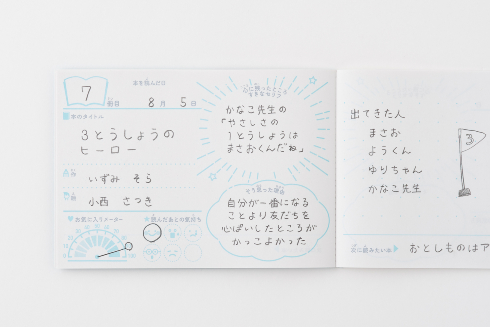 7
冊目
本を読んだ日
8月5日
本のタイトル
3とうしょうの
ヒーロー
いずみ そら
小西 さつき
お気に入りメーター
読んだあとの気持ち
心に残ったところ
かなこ先生の
「やさしさの
1とうしょうは
まさおくんだね」
そう思った理由
自分が一番になる
ことより友だちを
心ぱいしたところが
かっこよかった
出てきた人
まさお
ようくん
ゆりちゃん
かなこ先生
3
次に読みたい本
おとしものはア